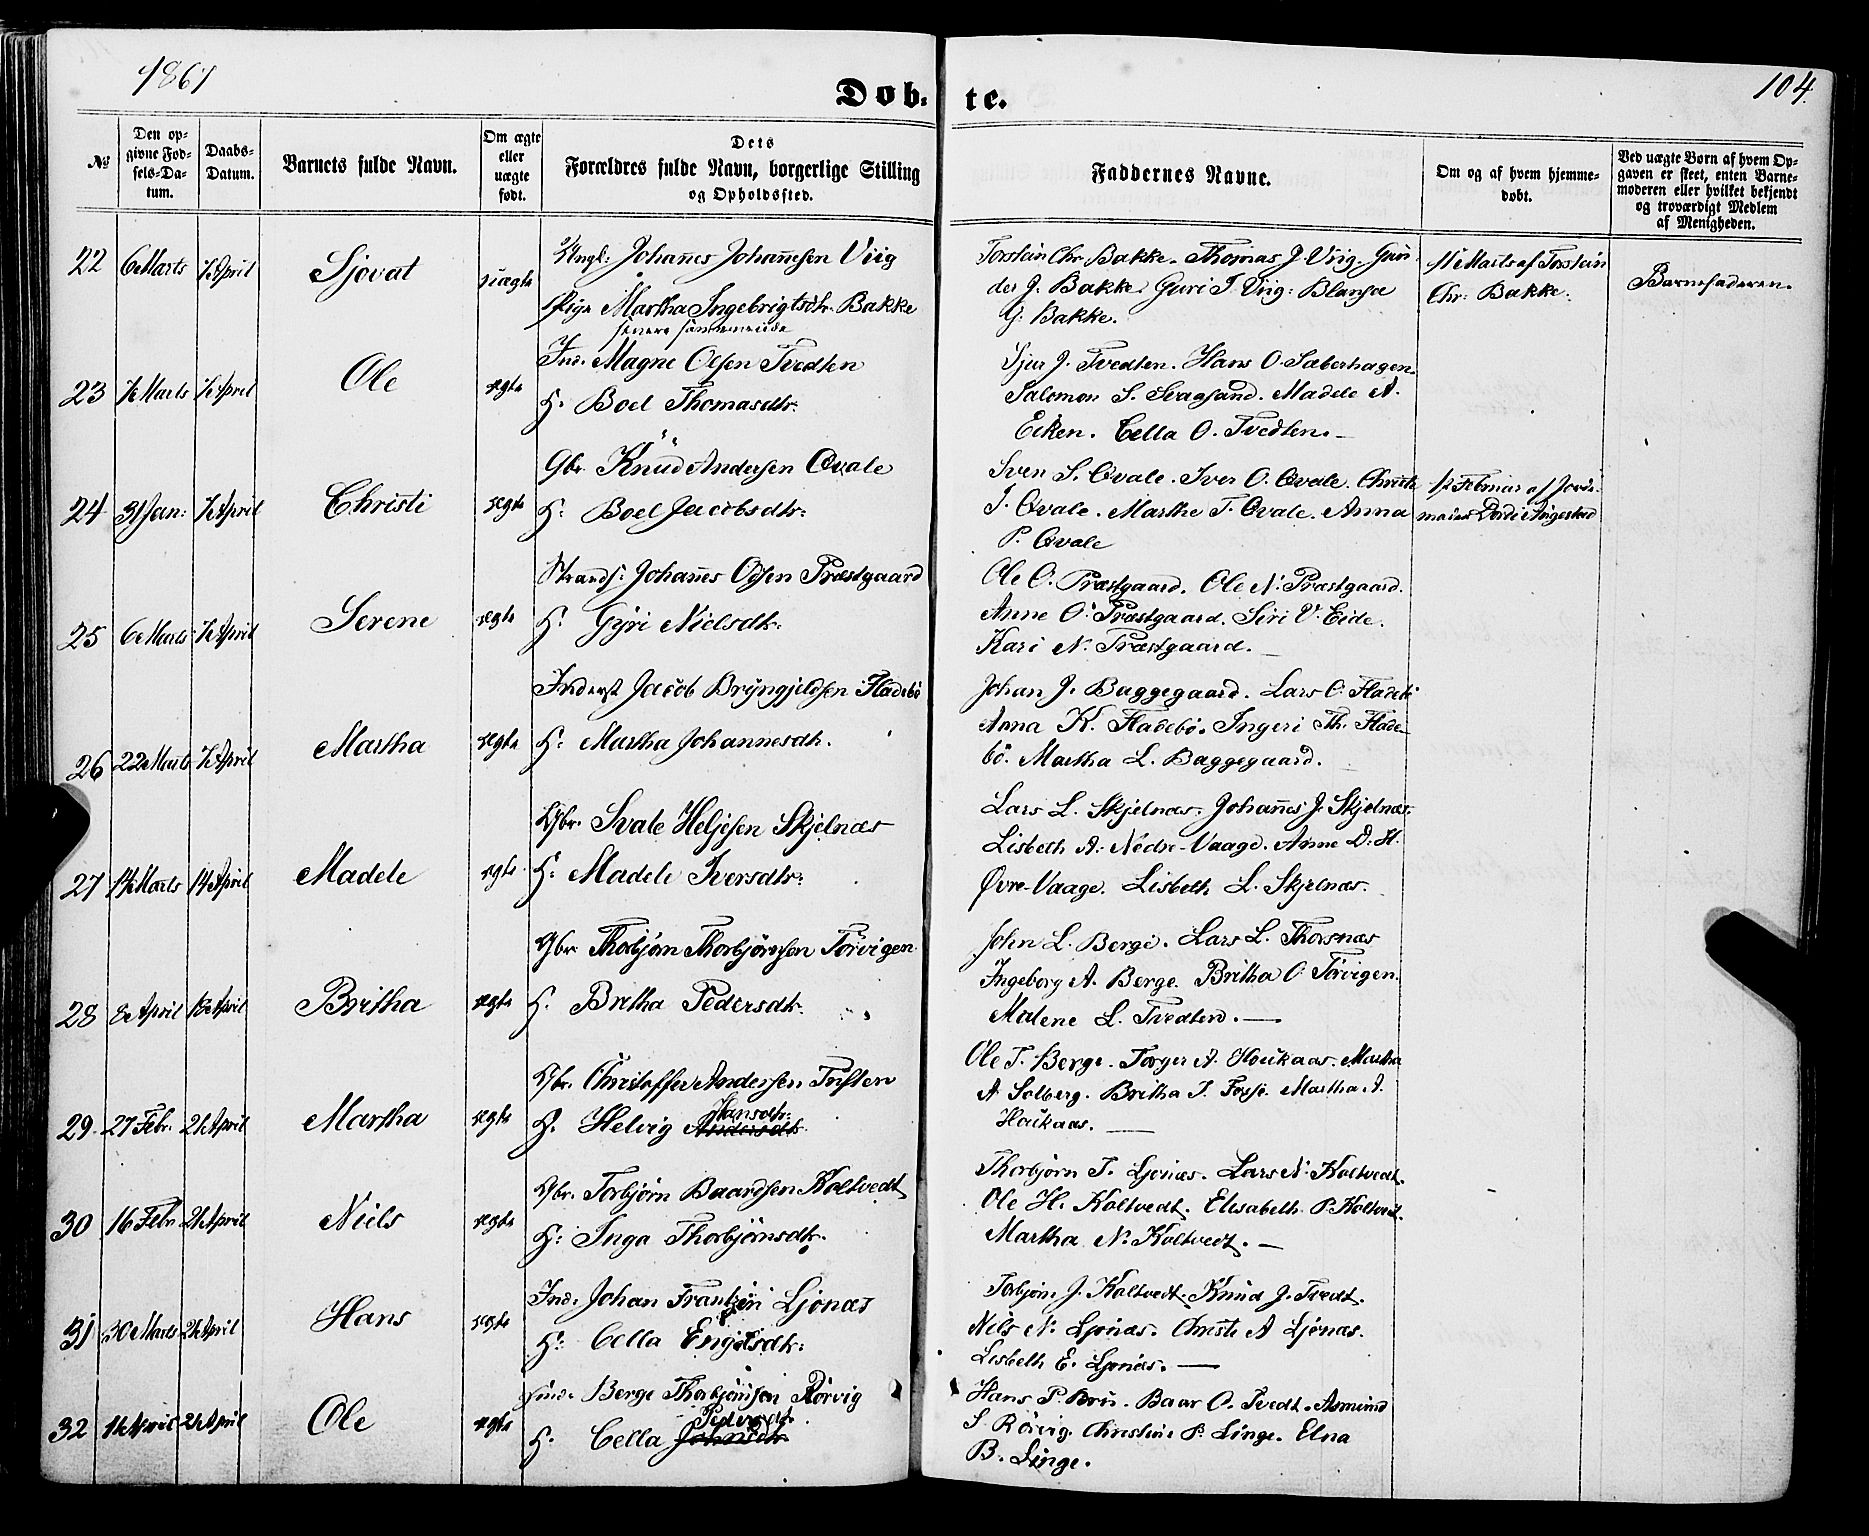 1861
104.
Døb- te.
№
Den op-
givne Fød-
sels-Da-
tum.
Daabs-
Datum.
Barnets fulde Navn.
Om ægte
eller
uægte
født.
Dets
Forældres fulde Navn, borgerlige Stilling
og Opholdssted.
Faddernes Navne.
Om og af hvem hjemme-
døbt.
Ved uægte Børn af hvem Op-
gaven er skeet, enten Barne-
moderen eller hvilket bekjendt
og troværdigt Medlem
af Menigheden.
22 6 Marts 7 April Sjovat uægte
Ungk: Johannes Johannesen Viig
Pige Martha Ingebrigtsdtr. Bakke
Torstein Chr. Bakke. Thomas J. Viig. Gun-
der J. Bakke. Guri T. Viig. Blansa
G. Bakke.
11 Marts af Torstein
Chr: Bakke.
Barnefaderen.
23 7 Marts 7 April Ole ægte
Ind. Magne Olsen Tvedten
H. Boel Thomasdtr:
Sjur J. Tvedten. Hans O. Sæberhagen.
Salomon S. Svaasand. Madele A.
Eiken. Cella O. Tvedten. —
24 31 Jan: 7 April Christi ægte
Gbr. Knud Andersen Qvale
H: Boel Jacobsdtr:
Sven S. Qvale. Iver O. Qvale. Christi
J. Qvale. Marthe T. Qvale. Anna
P. Qvale
12 Februar af Jord-
moder Dordi
25 6 Marts 7 April Serene ægte
Strands: Johannes Olsen Præstgaard
H. Gyri Nielsdtr:
Ole O. Præstgaard. Ole N. Præstgaard.
Anne O. Præstgaard. Siri V. Eide.
Kari N. Præstgaard. —
26 22 Marts 7 April Martha ægte
Inderst Jacob Bryngjeldsen Fladebö
H: Martha Johannesdtr.
Johan J. Baggegaard. Lars O. Fladebö
Anna K. Fladebö. Ingeri Th. Flade-
bö. Martha L. Baggegaard.
27 14 Marts 14 April Madele ægte
Gbr. Svale Heljesen Skjelnæs
H: Madele Iversdtr:
Lars L. Skjelnæs. Johannes J. Skjelnæs.
Lisbeth A. Nedre-Vaage. Anne D. H.
Øvre-Vaage. Lisbeth L. Skjelnæs.
28 8 April 18 April Britha ægte
Gbr Thorbjörn Thorbjörnsen Törvigen
H. Britha Pedersdtr.
John L. Berge. Lars L. Thorsnæs
Ingeborg A. Berge. Britha O. Törvigen.
Malene L. Tvedten. —
29 27 Febr. 21 April Martha ægte
Gbr. Christoffer Andersen Tuften
Hansdtr:
H. Helvig Andersdtr.
Ole T. Berge. Torger A. Houkaas. Martha
A. Solberg. Britha T. Martha A.
Houkaas. —
30 16 Febr. 21 April Niels ægte
Gbr. Torbjörn Baardsen Holtvedt
H: Inga Thorbjörnsdtr.
Thorbjörn T. Ljonæs. Lars N. Holtvedt.
Ole H. Holtvedt. Elisabeth P. Holtvedt.
Martha N. Holtvedt. —
31 30 Marts 21 April Hans ægte
Ind. Johan Frantzen Ljonæs
H: Cella Engelsdtr.
Torbjörn J. Holtvedt. Knud J. Tvedt.
Nils N. Ljonæs. Christi A Ljonæs.
Lisbeth E. Ljonæs. —
32 14 April 21 April Ole ægte
Ind. Berge Thorbjörnsen Rörvig
Pedersdt.
H. Cella Johnsdtr.
Hans P. Baar O. Tvedt. Asmund
S. Rörvig. Christine P. Linge. Elna
B. Linge.